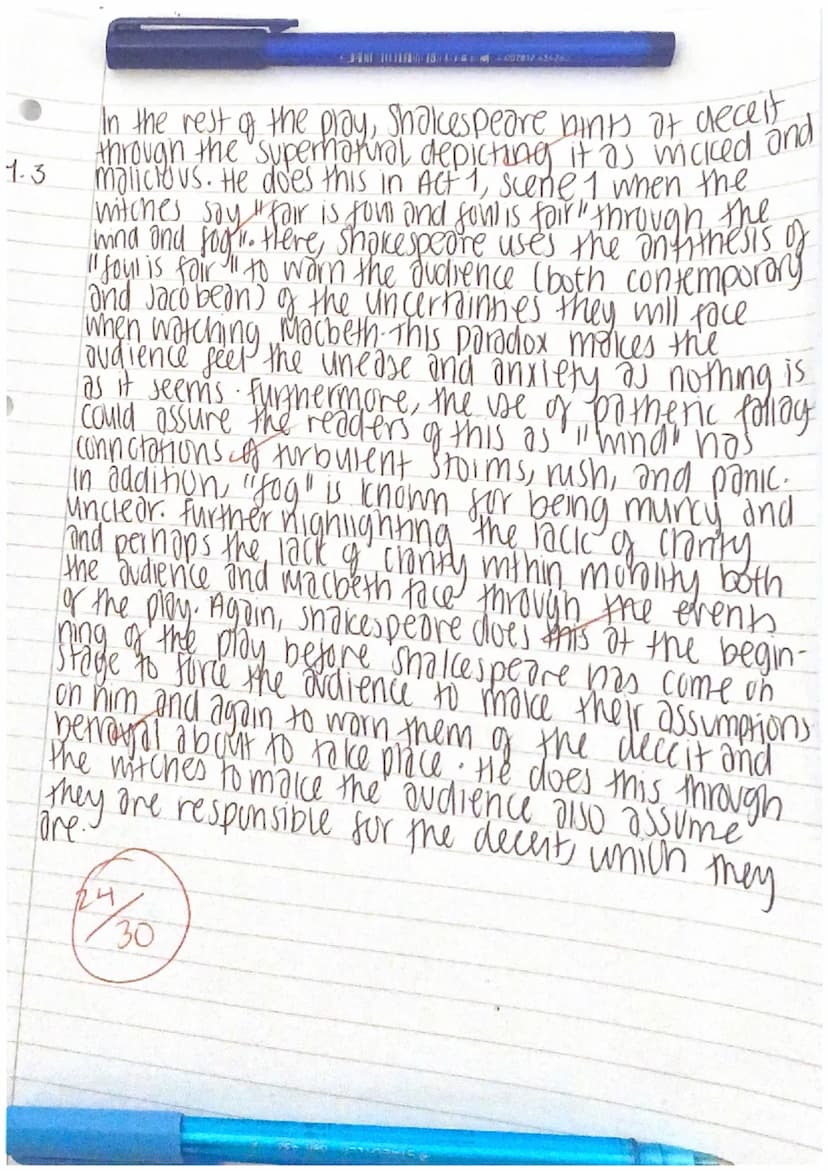 In the rest of the play, Shakespeare hints at deceit
through the supernatural depicting it as wicked and
1.3
malicious. He does this in Act 1, scene 1 when the
witches say "fair is foul and foul is fair" through the
wind and fog". Here, Shakespeare uses the antithesis of
"foul is fair" to warn the audience (both contemporary
and Jacobean) of the uncertainties they will face
when watching Macbeth. This paradox makes the
audience feel the unease and anxiety as nothing is
as it seems. Furthermore, the use of pathetic fallacy
could assure the readers of this as "wind" has
connotations of turbulent storms, rush, and panic.
In addition, "fog" is known for being murcy and
unclear. Further highlighting the lack of clarity
and perhaps the lack of clarity within morality both
the audience and Macbeth face through the events
of the play. Again, Shakespeare does this at the begin-
ning of the play before Shakespeare has come on
stage to force the audience to make their assumptions
on him and again to warn them of the deceit and
betrayal about to take place. He does this through
the witches to make the audience also assume
they are responsible for the deceit, which they
are.
24/30